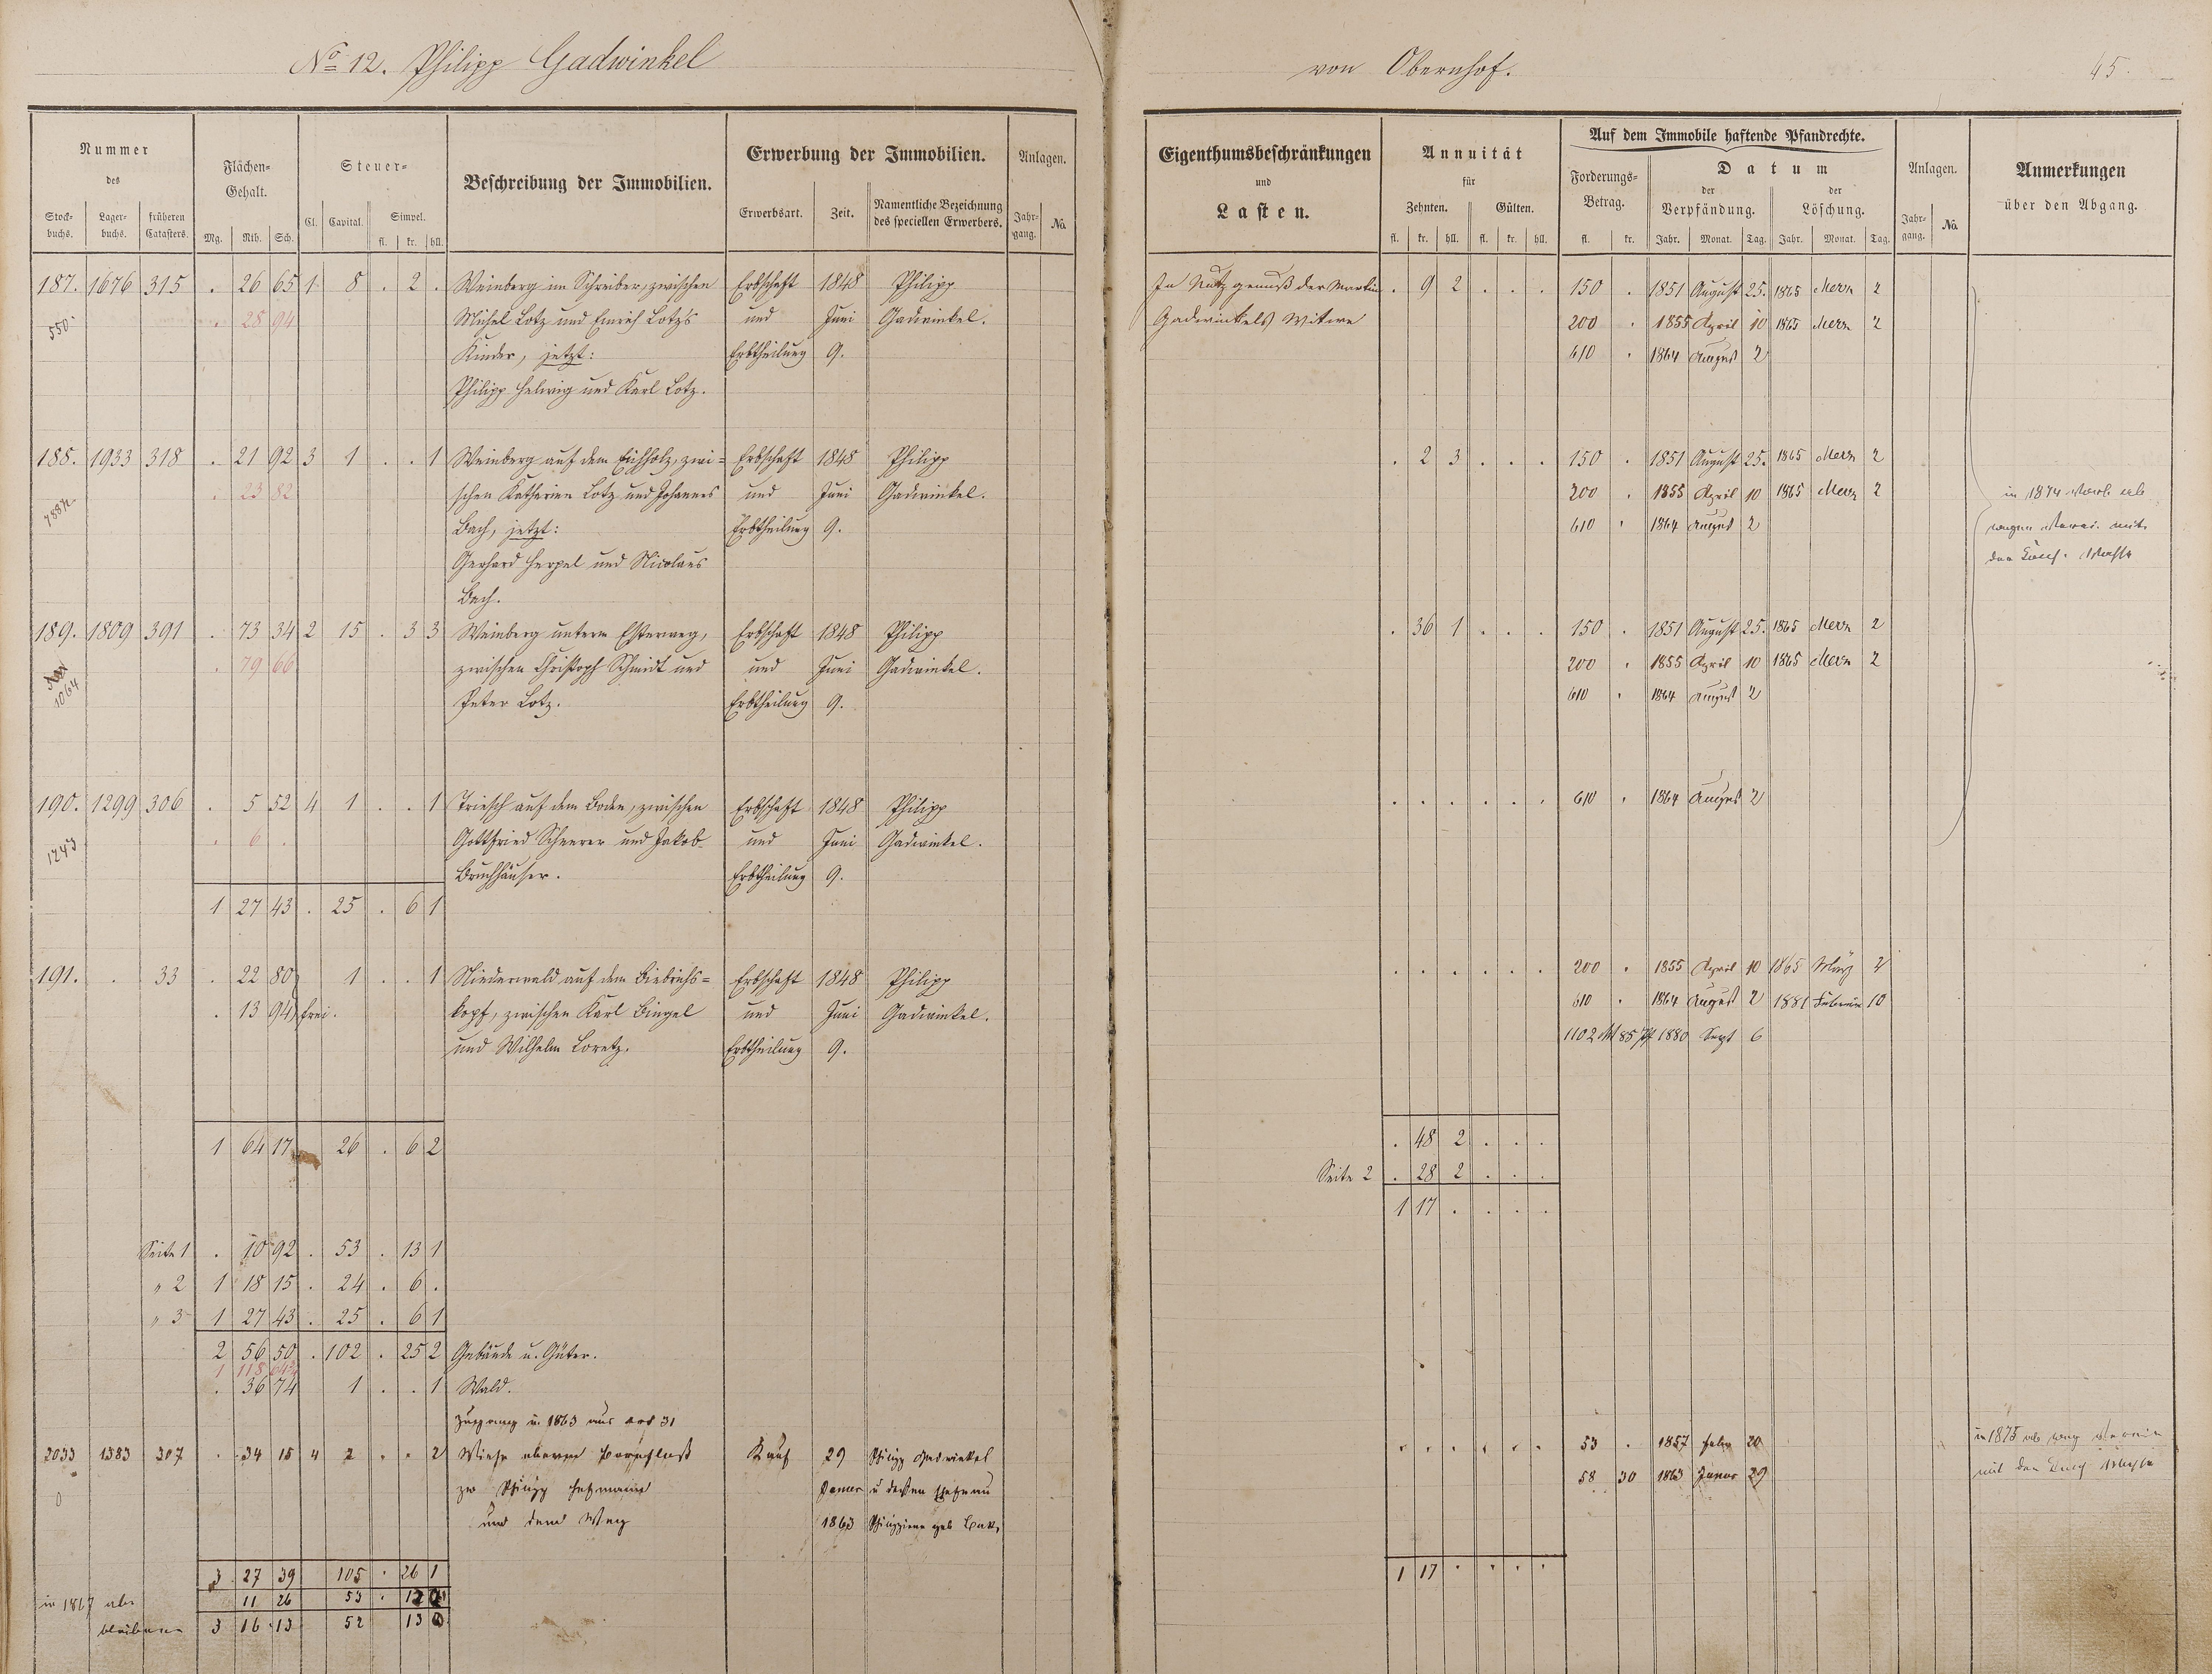 No 12. Philipp Gadwinkel
von Obernhof.
45.
Nummer des
Stockbuchs. Lagerbuchs. früheren Catasters.
Flächen-Gehalt.
Mg. Rth. Sch.
Steuer-
Cl. Capital. Simpel.
fl. kr. hll.
Beschreibung der Immobilien.
Erwerbung der Immobilien.
Erwerbsart. Zeit. Namentliche Bezeichnung des speciellen Erwerbers.
Anlagen.
Jahrgang. No.
Eigenthumsbeschränkungen
und
Lasten.
Annuität
für
Zehnten. Gülten.
fl. kr. hll. fl. kr. hll.
Auf dem Immobile haftende Pfandrechte.
Forderungs-Betrag.
fl. kr.
Datum
der Verpfändung. der Löschung.
Jahr. Monat. Tag. Jahr. Monat. Tag.
Anlagen.
Jahrgang. No.
Anmerkungen
über den Abgang.
187. 1676 315 . 26 65 1 8 . 2 . Weinberg im Schreiber, zwischen Erbschaft 1848 Philipp
550 . 28 94 Michel Lotz und Emrich Lotz's und Juni Gadwinkel.
Kinder, jetzt: Erbtheilung 9.
Philipp Helwig und Karl Lotz.
In Nutzgenuß der Martin . 9 2 . . . 150 . 1851 August 25. 1865 Merz 2
Gadwinkels Witwe 200 . 1855 April 10 1865 Merz 2
610 . 1864 August 2
188. 1933 318 . 21 92 3 1 . . 1 Weinberg auf dem Eichholz, zwi= Erbschaft 1848 Philipp
. 23 82 schen Katharina Lotz und Johannes und Juni Gadwinkel.
Bach, jetzt: Erbtheilung 9.
Gerhard Herpel und Nicolaus
Bach.
. 2 3 . . . 150 . 1851 August 25. 1865 Merz 2
200 . 1855 April 10 1865 Merz 2
610 . 1864 August 2
in 1874 ab
wegen mit
der
189. 1809 391 . 73 34 2 15 . 3 3 Weinberg unterm Esterweg, Erbschaft 1848 Philipp
. 79 66 zwischen Christoph Schmidt und und Juni Gadwinkel.
1064 Peter Lotz. Erbtheilung 9.
. 36 1 . . . 150 . 1851 August 25. 1865 Merz 2
200 . 1855 April 10 1865 Merz 2
610 . 1864 August 2
190. 1299 306 . 5 52 4 1 . . 1 Triesch auf dem Boden, zwischen Erbschaft 1848 Philipp
1243 . 6 . Gottfried Scheurer und Jakob und Juni Gadwinkel.
Bruchhäuser. Erbtheilung 9.
1 27 43 . 25 . 6 1
. . . . . . 610 . 1864 August 2
191. . 33 . 22 80 1 . . 1 Niederwald auf dem Biebrichs= Erbschaft 1848 Philipp
. 13 94 frei. kopf, zwischen Karl Bingel und Juni Gadwinkel.
und Wilhelm Loretz. Erbtheilung 9.
. . . . . . 200 . 1855 April 10 1865 März 2
610 . 1864 August 2 1881 Februar 10
1102 M 85 Pf 1880 Sept 6
1 64 17 . 26 . 6 2
. 48 2 . . .
Seite 2 . 28 2 . . .
1 17 . . . .
Seite 1 . 10 92 . 53 . 13 1
" 2 1 18 15 . 24 . 6 .
" 3 1 27 43 . 25 . 6 1
2 56 50 . 102 . 25 2 Gebäude u. Güter.
1 118
. 36 74 1 . . 1 Wald.
Zugang in 1863 aus Art 31
2033 1383 307 . 34 15 4 2 . . 2 Wiese Kauf 29 Philipp Gadwinkel
zw Philipp Hofmann Januar u dessen Ehefrau
und dem Weg 1863 Philippine geb
. . . . . . 53 . 1857 Febr 20
58 30 1863 Januar 29
in 1875 ab weg
mit der
3 27 39 105 . 26 1
in 1867 ab 11 26 53 .
bleiben 3 16 13 52 13
1 17 . . . .